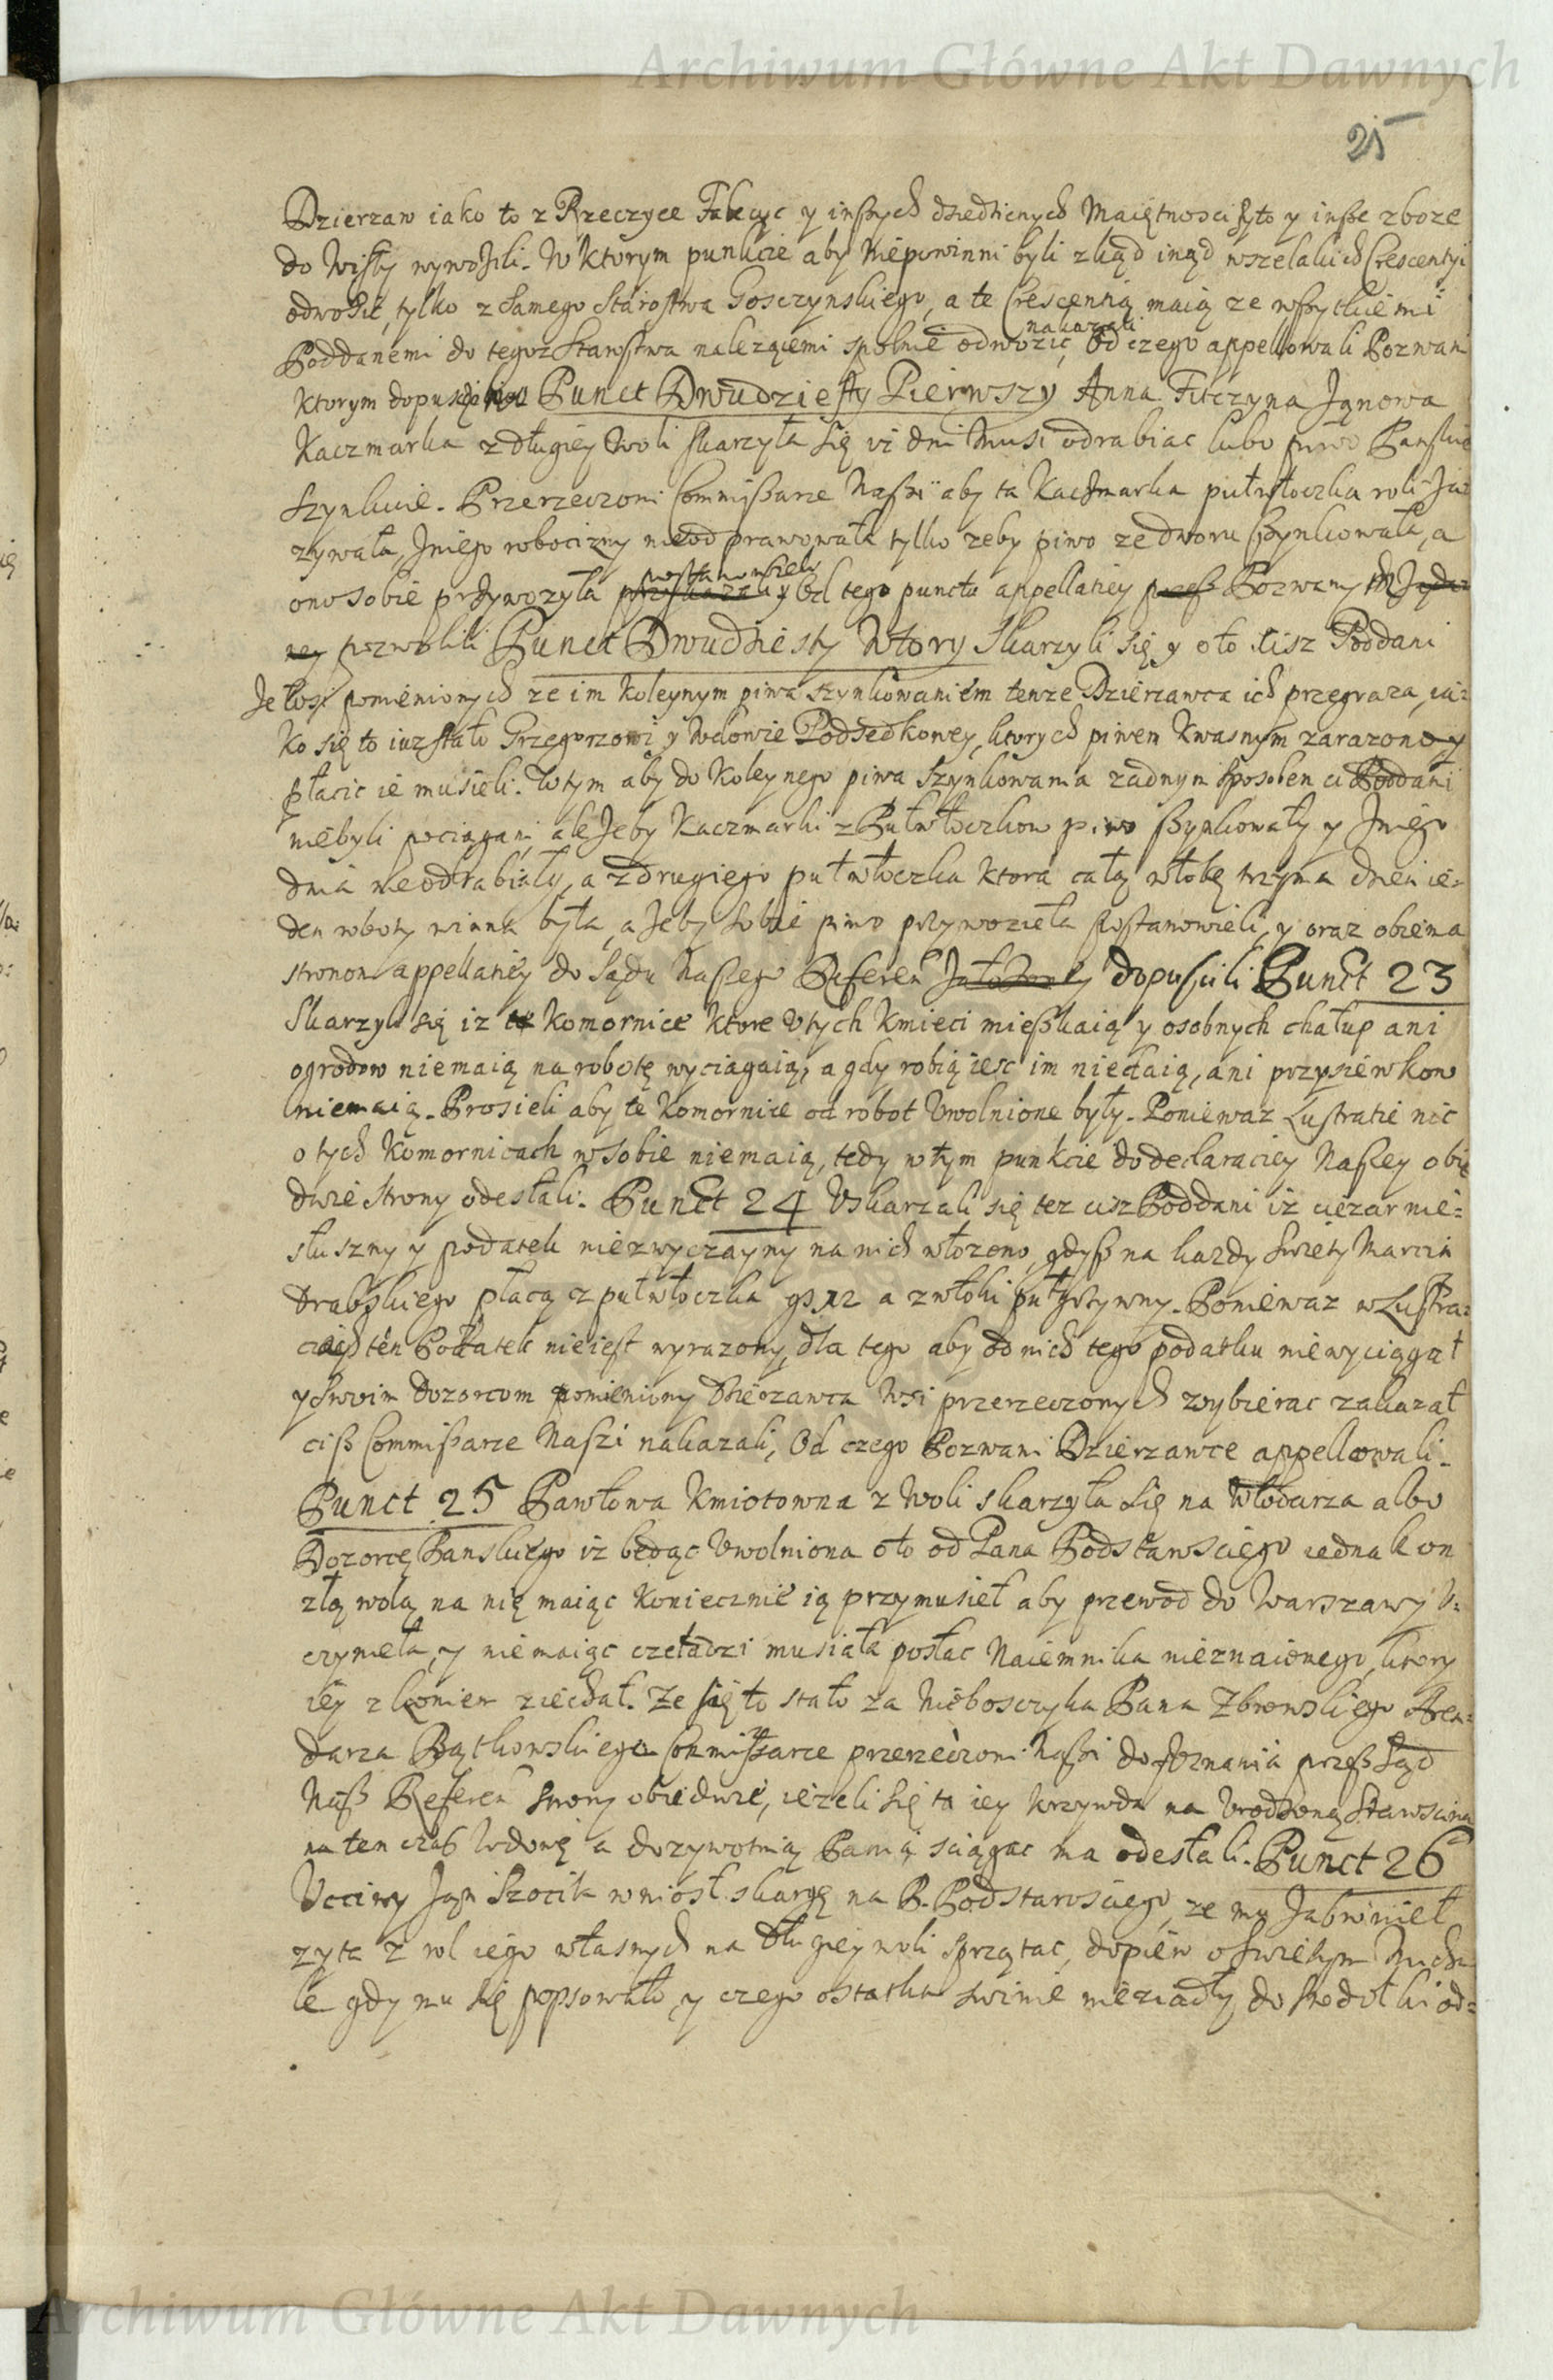 Archiwum Główne Akt Dawnych
25
Dzierzaw iako to z Rzeczyce Falecyc y inszych dziedzicznych Maiętnosci żyto y insze zboze
do Wisły wywozili. W ktorym punkcie aby niepowinni byli zkąd inąd wszelakich Crescentyi
odwozić, tylko z samego Starostwa Gosczynskiego, a te Crescentią maią ze wszytkiemi
nakazali
Poddanemi do tegoz Starostwa nalezącemi społnie odwozić, Od czego appellowali Pozwani
ktorym dopuscili Punct Dwudziesty Pierwszy Anna Fitczyna Janowa
Kaczmarka z długiey Woli skarzyła się iż dni musi odrabiac lubo piwo Panskie
szynkuie. Przerzeczoni Commissarze Naszi aby ta Kaczmarka pułwłoczka roli za-
zywała, Inszego robocizny nieodprawowała tylko zeby piwo ze dworu szynkowała, a
postanowiely
ono sobie przywozyła y od tego punctu appellaciey Pozwany
pozwolili Punct Dwudziesty Wtory Skarzyli się y oto cisz Poddani
ze wsi pomienionych ze im koleynym piwa szynkowaniem tenze Dzierzawca ich przegraza, ia-
ko się to iuz stało Grzegorzowi y Wdowie Podsedkowey, ktorych piwem kwasnym zarazono y
płacic ie musieli. W tym aby do koleynego piwa szynkowania zadnym sposobem ci Poddani
niebyli pociągani, ale zeby Kaczmarki z Pułwłoczkow piwo szynkowały y Inszego
dnia nieodrabiały, a z drugiego pułwłoczka ktora całą włokę trzyma dzien ie-
den roboty winna była, a zeby sobie piwo przywozieła postanowieli, y oraz obiema
stronom appellaciey do Sądu Naszego Referen dopuscili Punct 23
Skarzyli się iz te komornice ktore v tych kmieci mieszkaią y osobnych chałup ani
ogrodow niemaią na robotę wyciągaią, a gdy robią iesc im niedaią, ani przysiewkow
niemaią. Prosieli aby te komornice od robot vwolnione były. Poniewaz Lustratie nic
o tych komornicach w sobie niemaią, tedy w tym punkcie do declaraciey Naszey obie
dwie strony odesłali. Punct 24 Vskarzali się tez cisz Poddani iż cięzar nie-
słuszny y podatek niezwyczayny na nich włozono, gdysz na kazdy Swięty Marcin
Drabskiego płacą z pułwłoczka gs 12 a z włoki puł grzywny. Poniewaz w Lustra-
ciach ten Podatek nieiest wyrazony, dla tego aby od nich tego podatku niewyciągał
y swoim dozorcom pomieniony Dzierzawca Wsi przerzeczonych wybierac zakazał
cisz Commissarze Naszi nakazali, Od czego Pozwani Dzierzawce appellowali.
Punct 25 Pawłowa Kmiotowna z Woli skarzyła się na Włodarza albo
Dozorcę Panskiego iz będąc vwolniona oto od Pana Podstarosciego iednak on
złą wolą na nię maiąc koniecznie ią przymusieł aby przewod do Warszawy v-
czynieła, y niemaiąc czeladzi musiała posłac Naiemnika nieznaiomego, ktory
iey z koniem ziechał. Ze się to stało za Nieboszczyka Pana Zbrowskiego Aren-
darza Bątkowskiego Commissarze przerzeczoni Naszi do poznania przesz Sąd
Nasz Referen strony obiedwie, iezeli się ta iey krzywda na Vrodzoną Staroscinę
na ten czas Wdowę a dozywotnią Panią sciągac ma odesłali. Punct 26
Vcciwy Jan Szocik wniosł skargę na P. Podstarosciego, ze mu zabronieł
zyta z rol iego własnych na Długiey woli sprzątac, dopiero o swiętym Micha-
le gdy mu się popsowało, y czego ostatka swinie nieziadły, do stodołki od-
Archiwum Główne Akt Dawnych